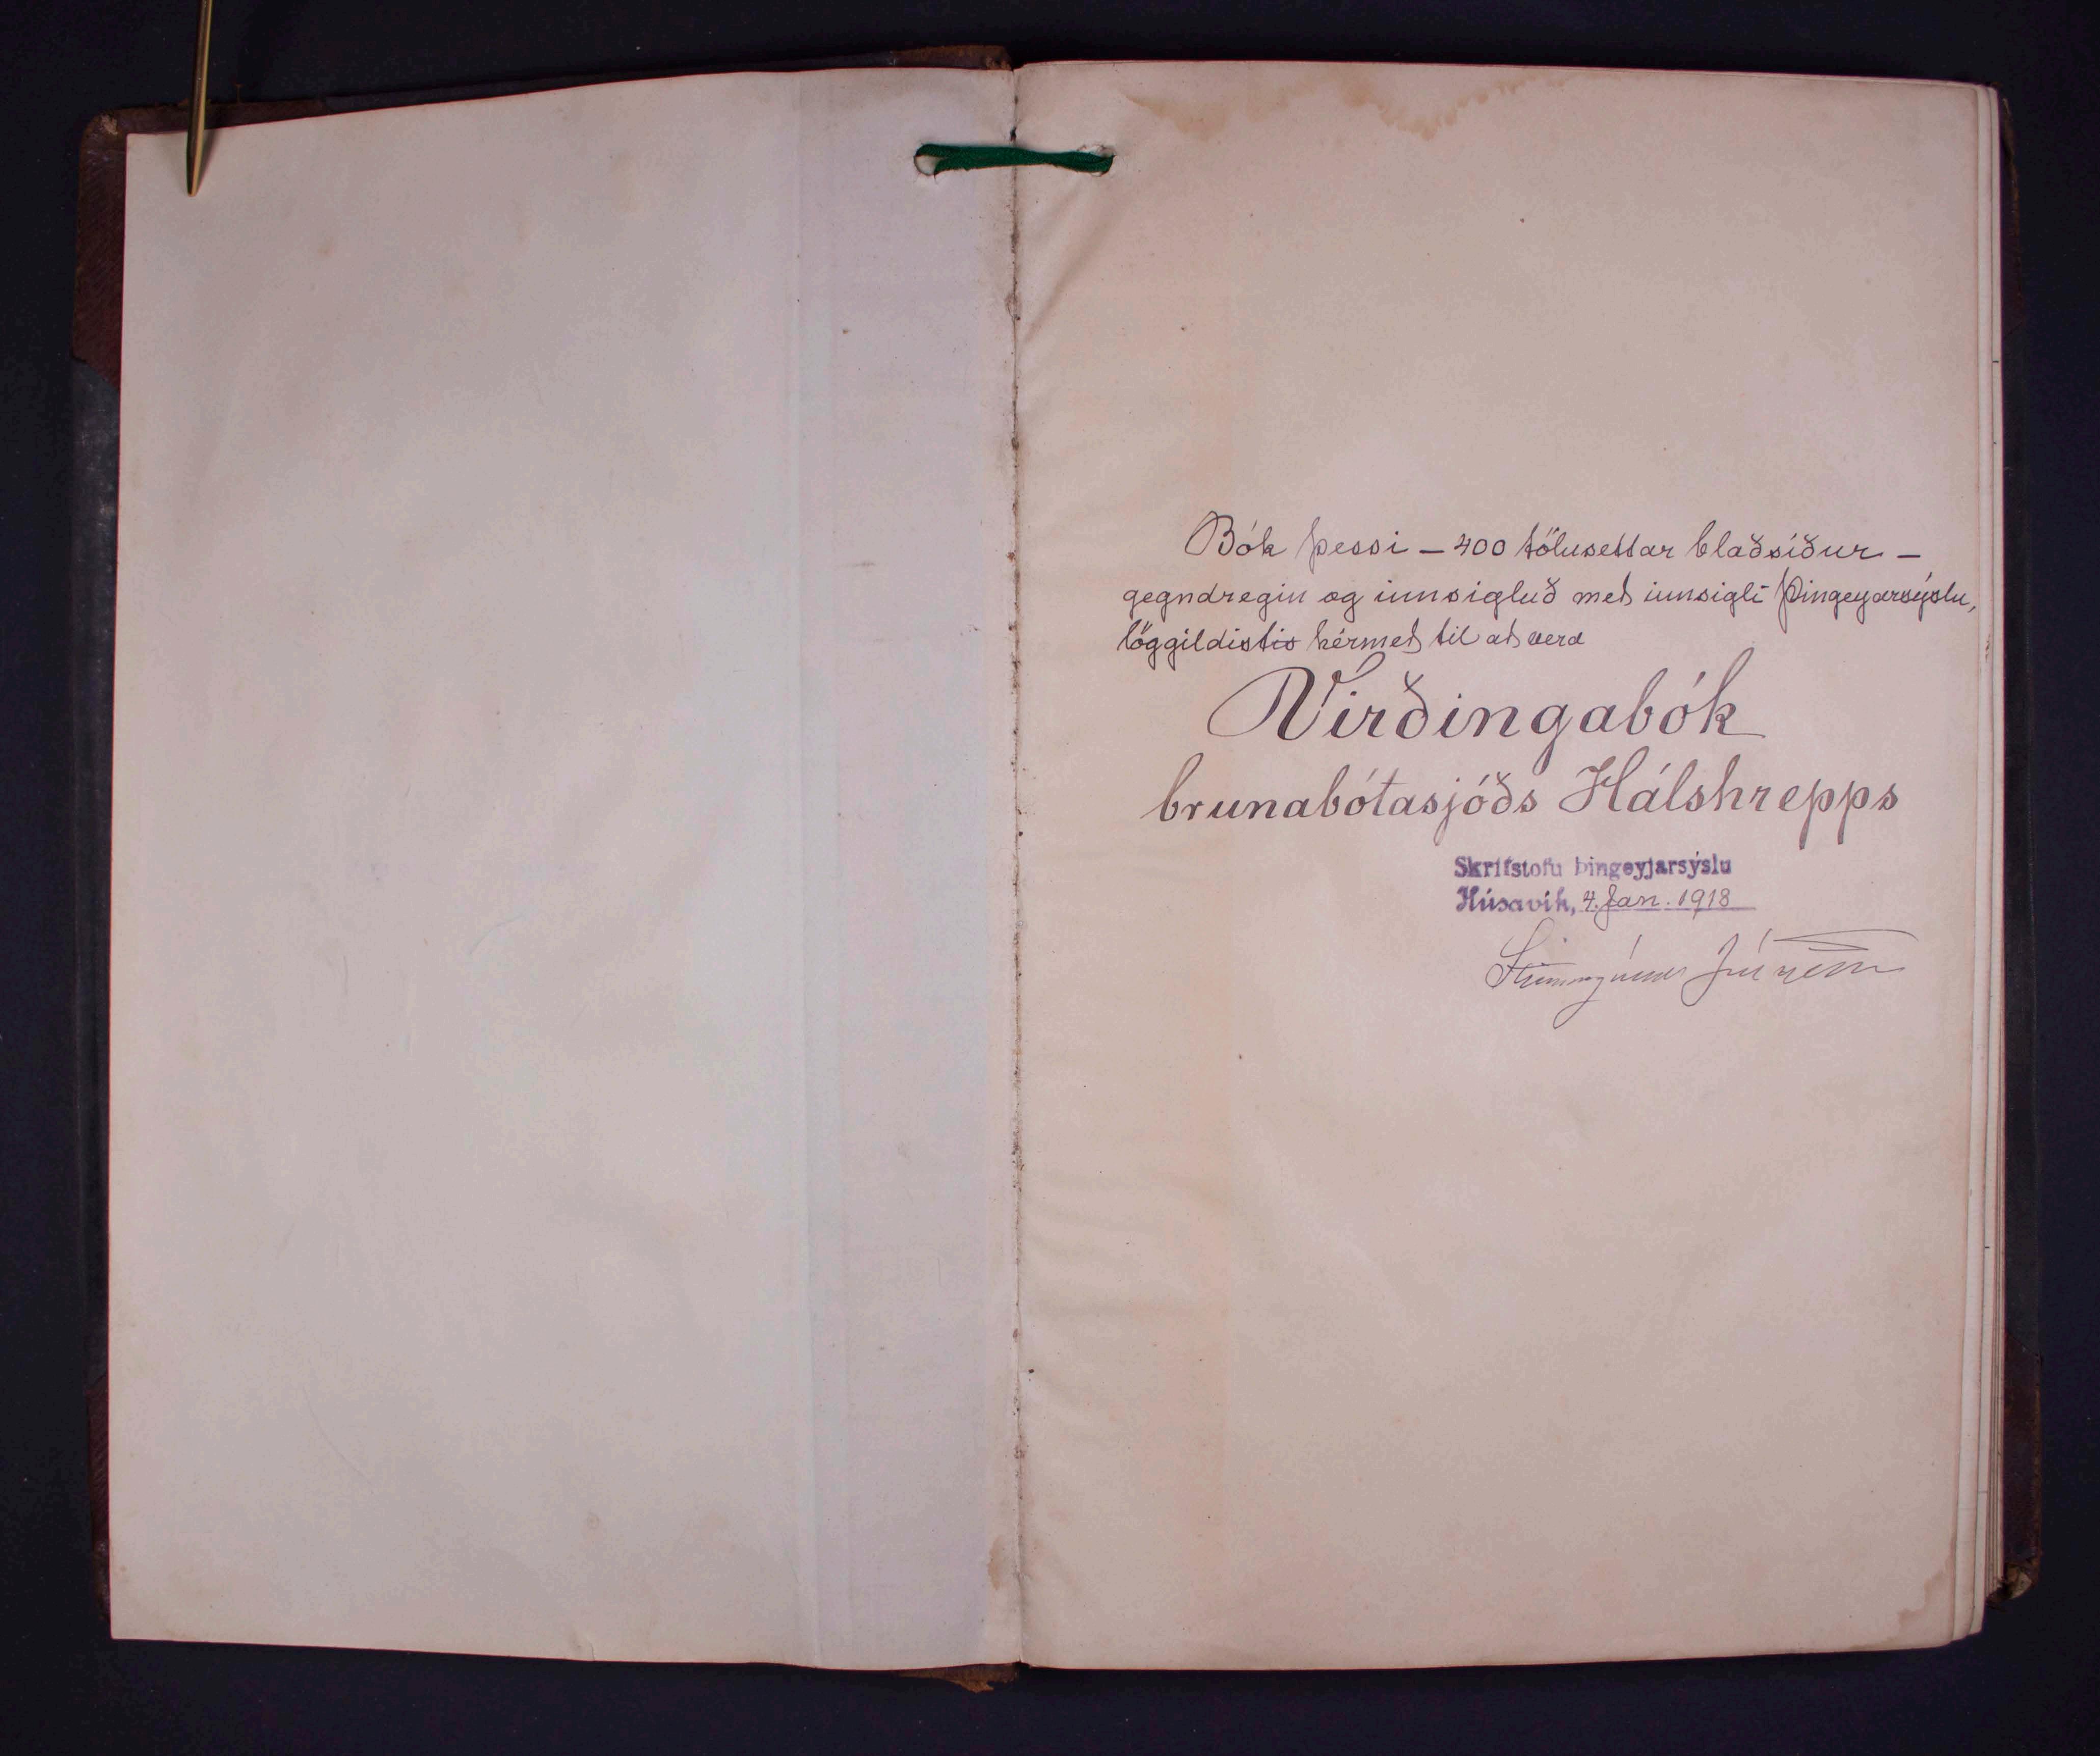 Bók þessi – 400 tölusettar blaðsíður –
gegndregin og innsigluð með innsigli Þingeyarsýslu,
löggildistis hérmeð til að verd
Virðingabók
brunabótasjóðs Hálshrepps
Skrifstofu Þingeyjarsýslu
Húsavík, 4. Jan. 1918
Steingrímur Jónsson